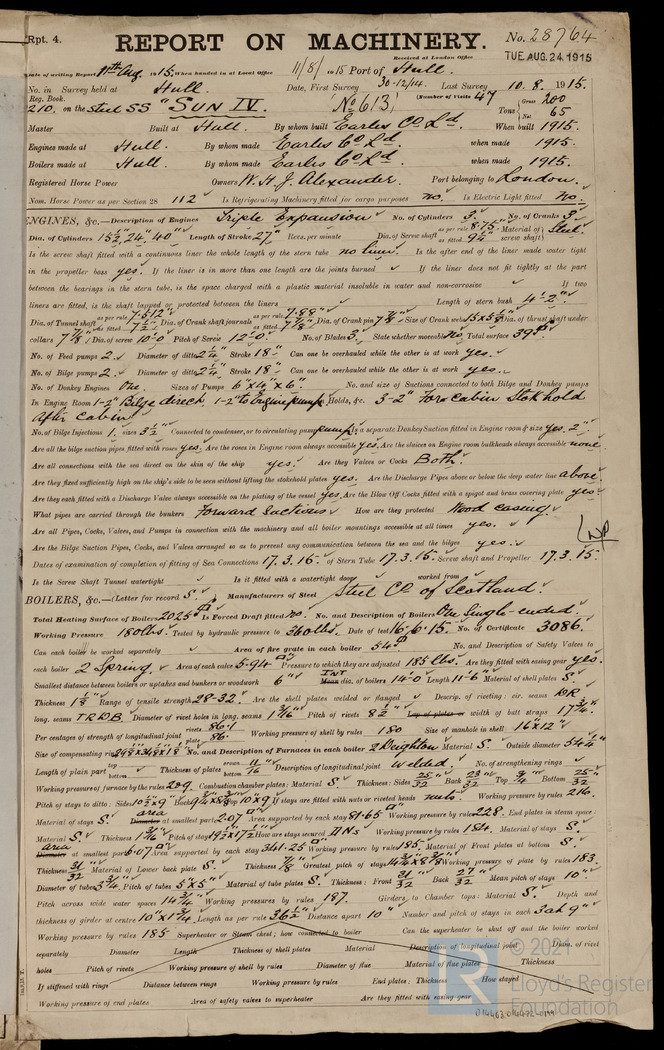 Rpt. 4.
REPORT ON MACHINERY.
No. 28764
Received at London Office TUE. AUG. 24 1915
Date of writing Report 11th Aug 1915. When handed in at Local Office 11/8/1915 Port of Hull.
No. in Survey held at Hull. Date, First Survey 30-12/14 Last Survey 10.8.1915.
Reg. Book. (Number of Visits 47
210. on the Steel SS "SUN IV." (No 613) Tons { Gross 200 Net 65
Master Built at Hull. By whom built Earles Co Ld. When built 1915.
Engines made at Hull. By whom made Earles Co Ld. when made 1915.
Boilers made at Hull. By whom made Earles Co Ld. when made 1915.
Registered Horse Power Owners W. H. J. Alexander. Port belonging to London.
Nom. Horse Power as per Section 28 112 Is Refrigerating Machinery fitted for cargo purposes No. Is Electric Light fitted No.
ENGINES, &c.—Description of Engines Triple Expansion No. of Cylinders 3. No. of Cranks 3.
Dia. of Cylinders 15½", 24", 40" Length of Stroke 27" Revs. per minute Dia. of Screw shaft as per rule 8.75 as fitted 9¼" Material of screw shaft Steel
Is the screw shaft fitted with a continuous liner the whole length of the stern tube no liner. Is the after end of the liner made water tight
in the propeller boss yes. If the liner is in more than one length are the joints burned If the liner does not fit tightly at the part
between the bearings in the stern tube, is the space charged with a plastic material insoluble in water and non-corrosive If two
liners are fitted, is the shaft lapped or protected between the liners Length of stern bush 4'-2"
Dia. of Tunnel shaft as per rule 7.512" as fitted 7½" Dia. of Crank shaft journals as per rule 7.88" as fitted 7⅞" Dia. of Crank pin 7⅞" Size of Crank webs 15x5⅛" Dia. of thrust shaft under
collars 7⅞" Dia. of screw 10'-0" Pitch of Screw 12'-0" No. of Blades 3 State whether moveable No Total surface 39 □'
No. of Feed pumps 2. Diameter of ditto 2¼" Stroke 18" Can one be overhauled while the other is at work yes.
No. of Bilge pumps 2. Diameter of ditto 2¼" Stroke 18" Can one be overhauled while the other is at work yes.
No. of Donkey Engines One. Sizes of Pumps 6"x4"x6" No. and size of Suctions connected to both Bilge and Donkey pumps
In Engine Room 1-2" Bilge direct, 1-2" to Engine pump In Holds, &c. 3-2" Fore cabin Stokhold
After cabin
No. of Bilge Injections 1. sizes 3½" Connected to condenser, or to circulating pump pump Is a separate Donkey Suction fitted in Engine room & size yes. 2".
Are all the bilge suction pipes fitted with roses yes. Are the roses in Engine room always accessible yes. Are the sluices on Engine room bulkheads always accessible none.
Are all connections with the sea direct on the skin of the ship yes. Are they Valves or Cocks Both.
Are they fixed sufficiently high on the ship's side to be seen without lifting the stokehold plates yes. Are the Discharge Pipes above or below the deep water line above.
Are they each fitted with a Discharge Valve always accessible on the plating of the vessel yes. Are the Blow Off Cocks fitted with a spigot and brass covering plate yes.
What pipes are carried through the bunkers Forward Suctions How are they protected Wood casing.
Are all Pipes, Cocks, Valves, and Pumps in connection with the machinery and all boiler mountings accessible at all times yes.
Are the Bilge Suction Pipes, Cocks, and Valves arranged so as to prevent any communication between the sea and the bilges yes.
Dates of examination of completion of fitting of Sea Connections 17.3.15. of Stern Tube 17.3.15. Screw shaft and Propeller 17.3.15.
Is the Screw Shaft Tunnel watertight Is it fitted with a watertight door worked from
BOILERS, &c.—(Letter for record S.) Manufacturers of Steel Steel Co of Scotland.
Total Heating Surface of Boilers 2025 □' Is Forced Draft fitted no. No. and Description of Boilers One Single-ended.
Working Pressure 180 lbs. Tested by hydraulic pressure to 360 lbs. Date of test 16.6.15. No. of Certificate 3086.
Can each boiler be worked separately Area of fire grate in each boiler 54 □' No. and Description of Safety Valves to
each boiler 2 Spring. Area of each valve 5.94 □" Pressure to which they are adjusted 185 lbs. Are they fitted with easing gear yes.
Smallest distance between boilers or uptakes and bunkers or woodwork 6" Mean INT dia. of boilers 14'-0 Length 11'-6" Material of shell plates S.
Thickness Range of tensile strength 28-32. Are the shell plates welded or flanged Descrip. of riveting: cir. seams DR
long. seams T.R.D.B. Diameter of rivet holes in long. seams 1 3/16" Pitch of rivets 8½" Lap of plates or width of butt straps 17¾"
Per centages of strength of longitudinal joint rivets 86.1 plate 86. Working pressure of shell by rules 180 Size of manhole in shell 16"x12"
Size of compensating ring No. and Description of Furnaces in each boiler 2 Deighton Material S. Outside diameter 54¼"
Length of plain part top bottom Thickness of plates crown bottom 11/16" Description of longitudinal joint Welded. No. of strengthening rings
Working pressure of furnace by the rules 209 Combustion chamber plates: Material S. Thickness: Sides 25/32" Back 23/32" Top ¾" Bottom 25/32"
Pitch of stays to ditto: Sides 10½x9" Back Top 10x9 If stays are fitted with nuts or riveted heads nuts. Working pressure by rules 216.
Material of stays S. Diameter area at smallest part 2.07 □" Area supported by each stay 81.65 □" Working pressure by rules 228. End plates in steam space:
Material S. Thickness Pitch of stays 19½x17½ How are stays secured DNs Working pressure by rules 184. Material of stays S.
Diameter area at smallest part 6.07 □" Area supported by each stay 341.25 □" Working pressure by rules 185. Material of Front plates at bottom S.
Thickness 31/32" Material of Lower back plate S. Thickness 7/8" Greatest pitch of stays Working pressure of plate by rules 183.
Diameter of tubes 3¾" Pitch of tubes 5"x5" Material of tube plates S. Thickness: Front 31/32" Back 27/32" Mean pitch of stays 10"
Pitch across wide water spaces 14¾" Working pressures by rules 187. Girders to Chamber tops: Material S. Depth and
thickness of girder at centre 10"x1¾" Length as per rule 36½" Distance apart 10" Number and pitch of stays in each 3 at 9"
Working pressure by rules 185 Superheater or Steam chest; how connected to boiler Can the superheater be shut off and the boiler worked
separately Diameter Length Thickness of shell plates Material Description of longitudinal joint Diam. of rivet
holes Pitch of rivets Working pressure of shell by rules Diameter of flue Material of flue plates Thickness
If stiffened with rings Distance between rings Working pressure by rules End plates: Thickness How stayed
Working pressure of end plates Area of safety valves to superheater Are they fitted with easing gear
© 2021
Lloyd's Register
Foundation